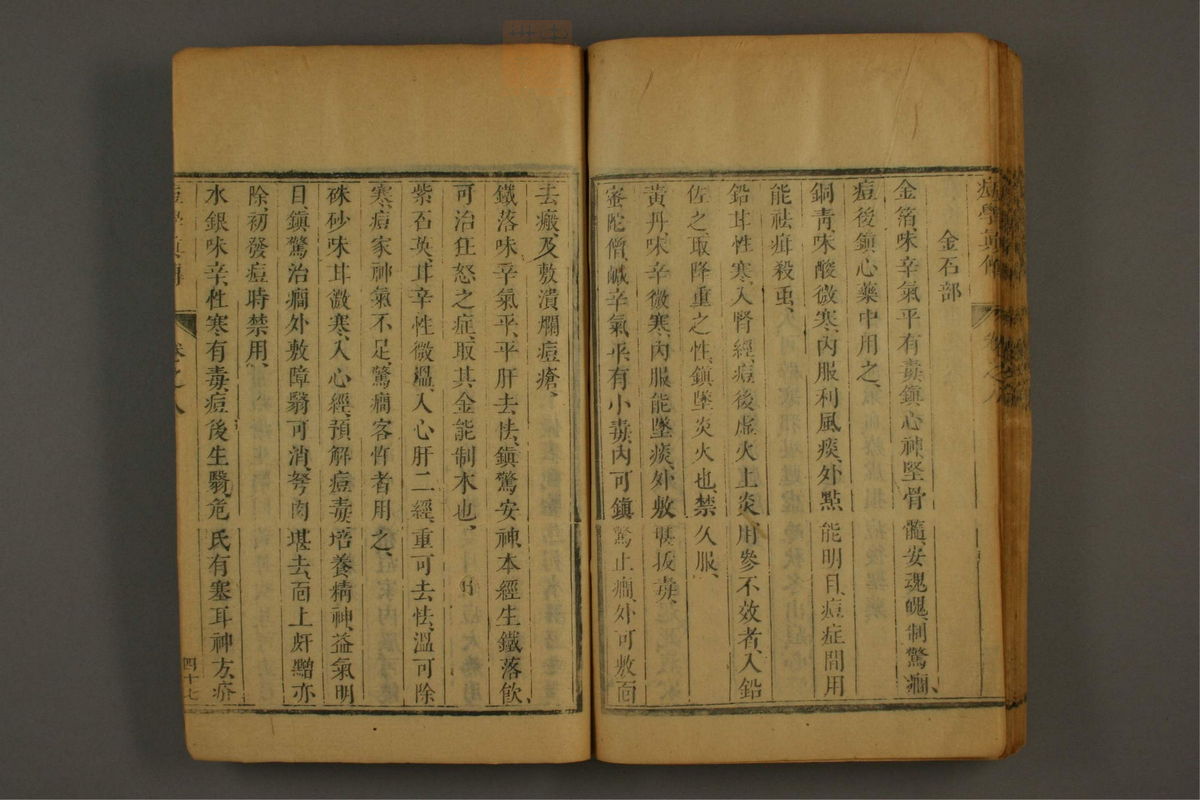 痘學眞傳 卷之八
金石部
金箔味辛氣平有毒鎭心神堅骨髓安魂魄制驚癎、
痘後鎭心藥中用之、
銅靑、味酸微寒、內服利風痰、外點能明目、痘症間用
能祛疳殺虫、
鉛甘性寒、入腎經、痘後虛火上炎用參不效者、入鉛
佐之、取降重之性、鎭墜炎火也、禁久服、
黃丹、味辛微寒、內服能墜痰、外敷堪拔毒、
密陀僧、鹹辛氣平、有小毒、內可鎭驚止癎、外可敷面
去瘢、及敷潰爛痘瘡、
鐵落味辛氣平、平肝去怯、鎭驚安神、本經生鐵落飮、
可治狂怒之症、取其金能制木也、
紫石英、甘辛性微溫、入心肝二經、重可去怯、溫可除
寒、痘家神氣不足、驚癎客忤者用之、
硃砂味甘微寒、入心經、預解痘毒、培養精神、益氣明
目、鎭驚治癎、外敷障翳可消、努肉堪去、面上皯䵴亦
除、初發痘時禁用、
水銀味辛、性寒、有毒、痘後生翳、危氏有塞耳神方、疥
痘學眞傳 卷之八 四十七